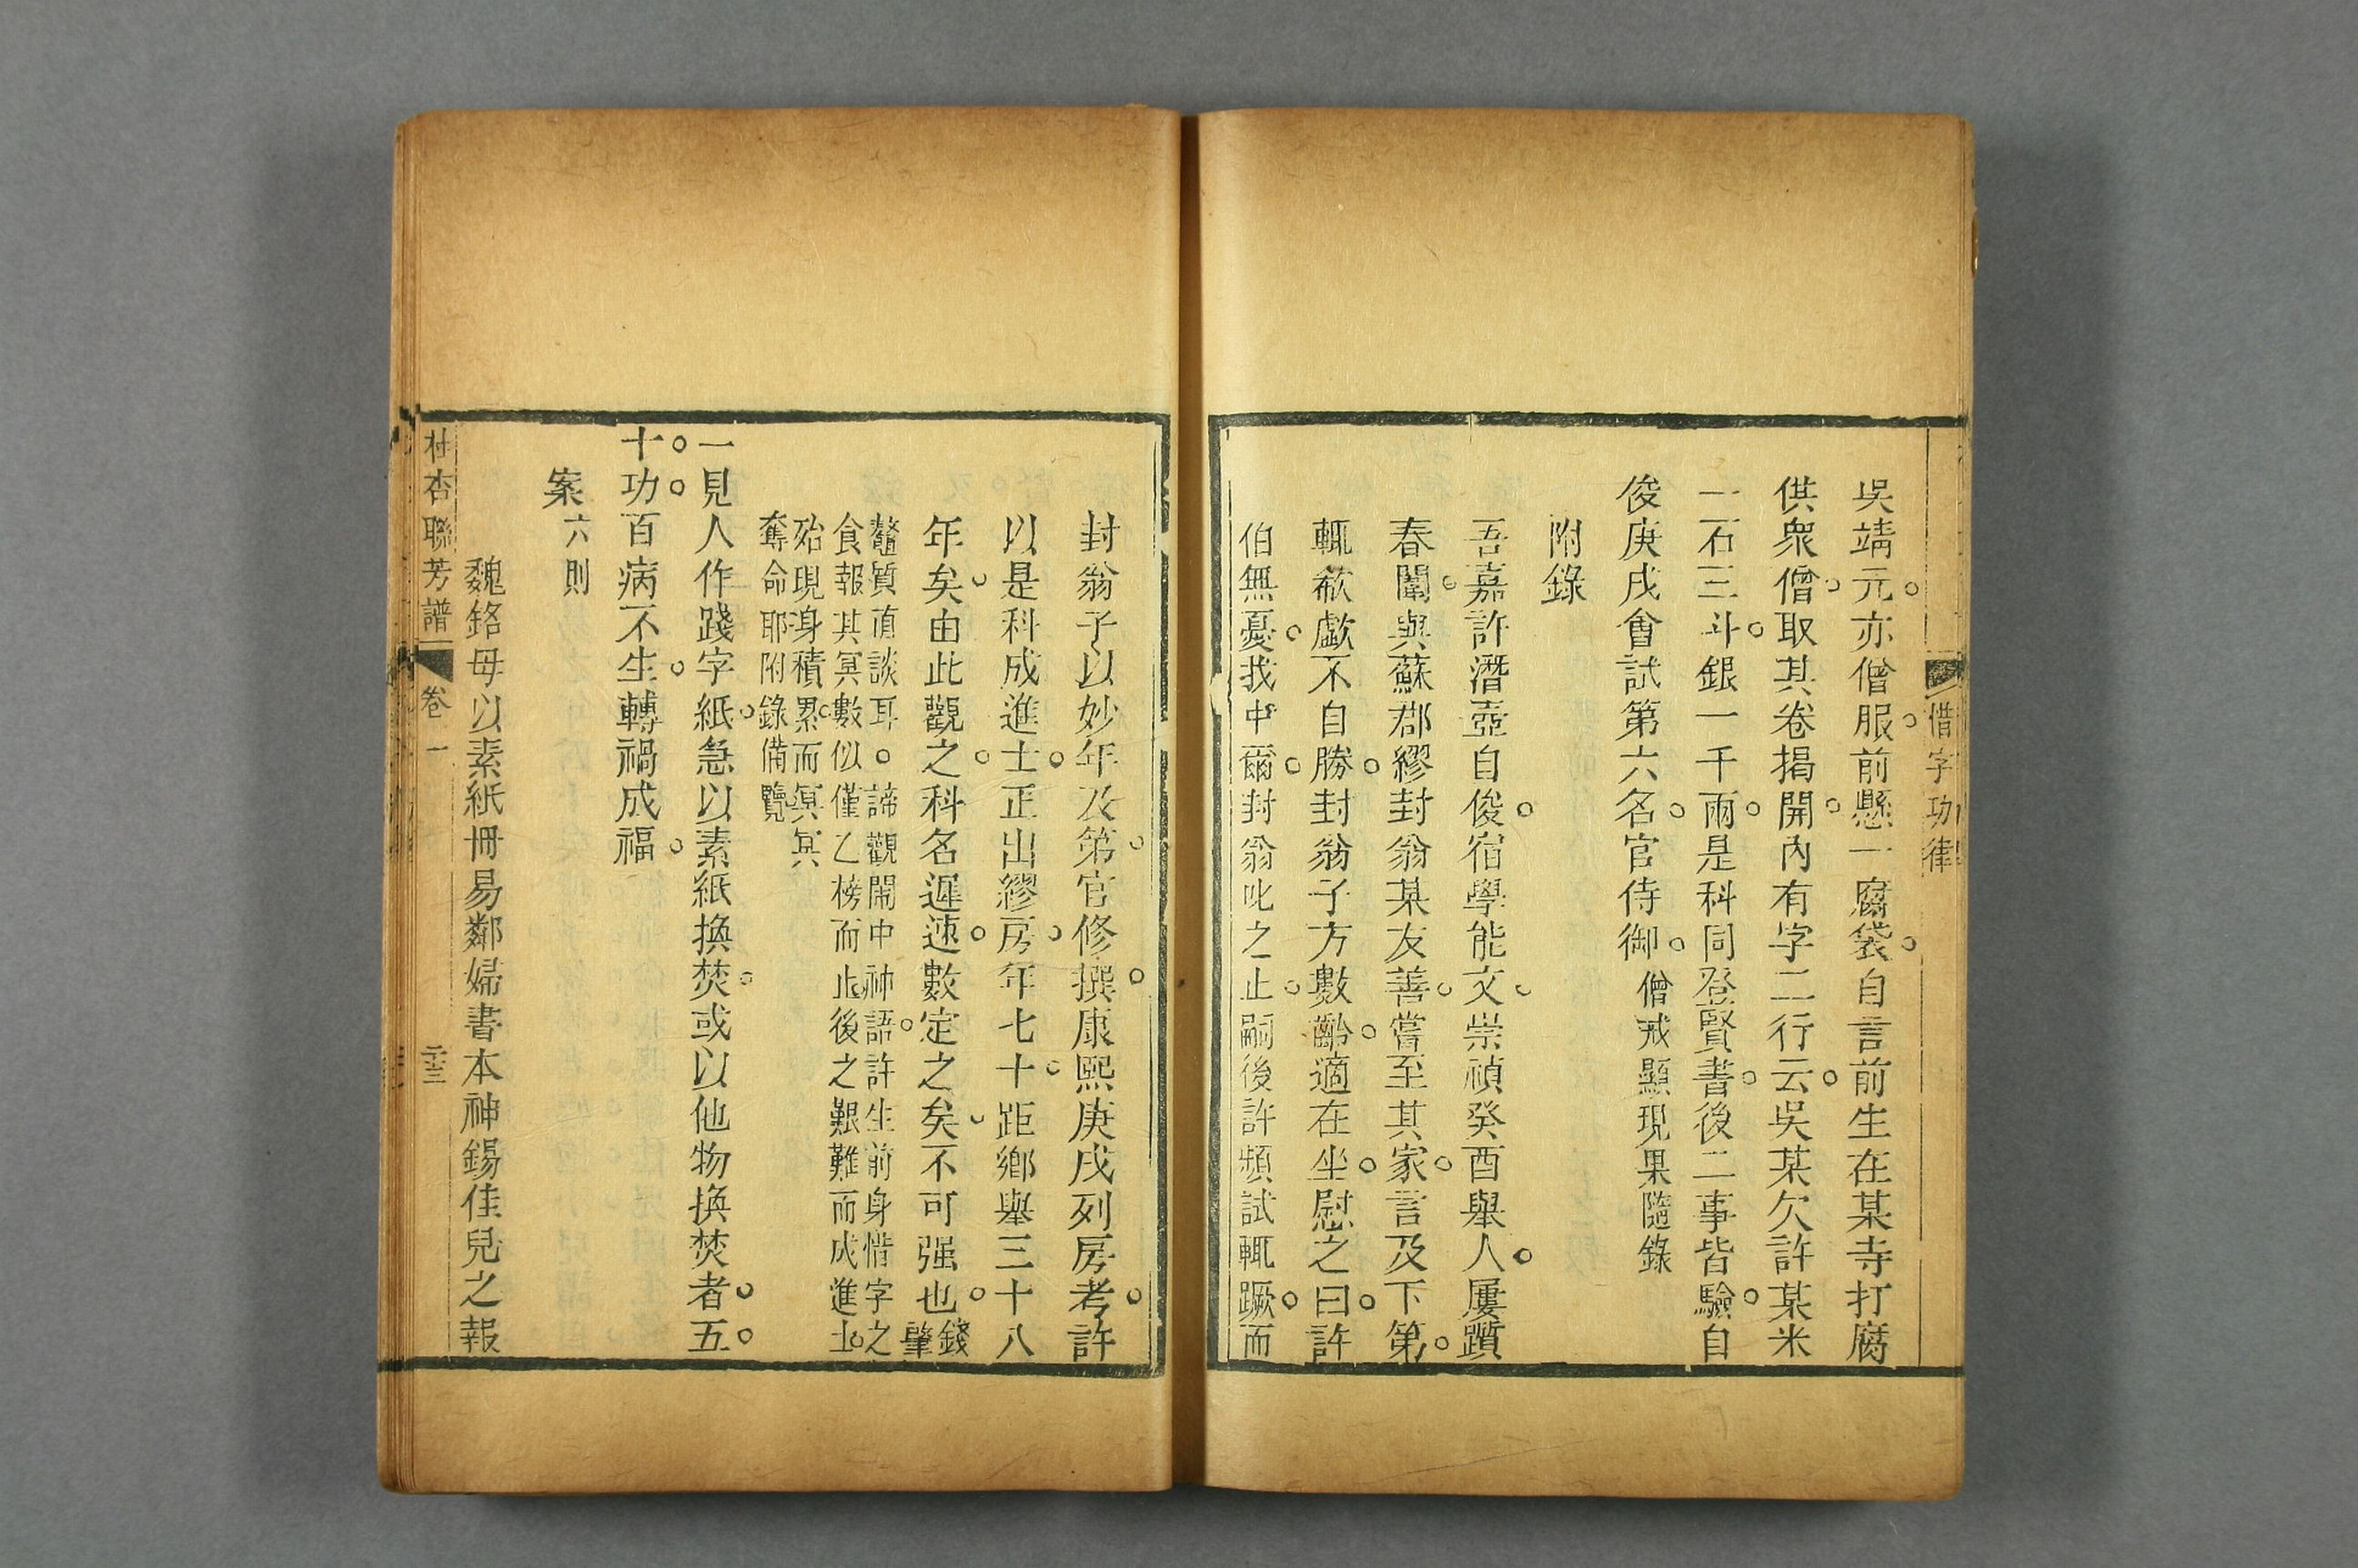 惜字功律
吳靖元亦僧服前懸一腐袋自言前生在某寺打腐
供衆僧取其卷揭開內有字二行云吳某欠許某米
一石三斗銀一千兩是科同登賢書後二事皆驗自
俊庚戌會試第六名官侍御僧戒顯現果隨錄
附錄
吾嘉許潛壺自俊宿學能文崇禎癸酉舉人屢躓
春闈與蘇郡繆封翁某友善嘗至其家言及下第
輒欷歔不自勝封翁子方數齡適在坐慰之曰許
伯無憂我中爾封翁叱之止嗣後許頻試輒蹶而
封翁子以妙年及第官修撰康熙庚戌列房考許
以是科成進士正出繆房年七十距鄉舉三十八
年矣由此觀之科名遲速數定之矣不可强也錢肇
鼇質直談耳諦觀闈中神語許生前身惜字之
食報其冥數似僅乙榜而止後之艱難而成進士
殆現身積累而冥冥
奪命耶附錄備覽
一見人作踐字紙急以素紙換焚或以他物換焚者五
十功百病不生轉禍成福
案六則
魏鉻母以素紙冊易鄰婦書本神錫佳兒之報
杜杏聯芳譜 卷一 二十三